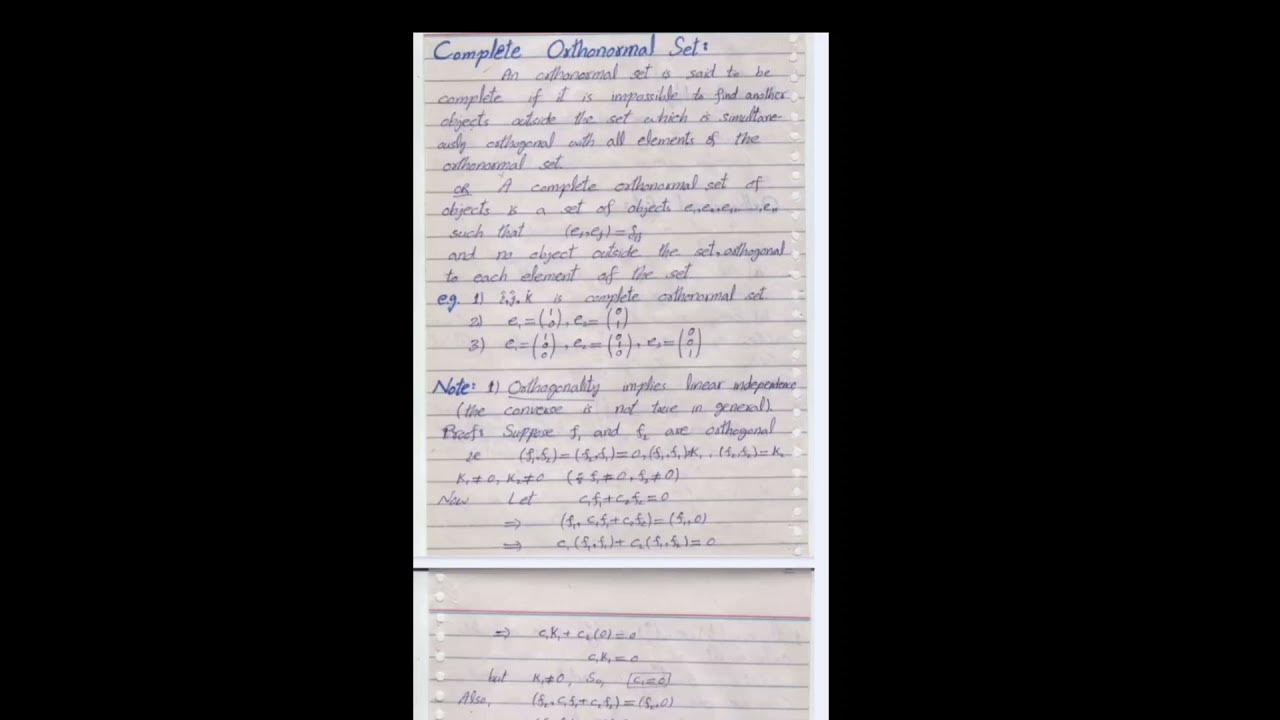 Complete Orthonormal Set:
An orthonormal set is said to be
complete if it is impossible to find another
objects outside the set which is simultane-
ously orthogonal with all elements of the
orthonormal set.
OR A complete orthonormal set of
objects is a set of objects e₁,e₂,e₃,....,eₙ
such that (eᵢ,eⱼ)=δᵢⱼ
and no object outside the set, orthogonal
to each element of the set
e.g. 1) î,ĵ,k̂ is complete orthonormal set.
2) e₁=(1 0), e₂=(0 1)
3) e₁=(1 0 0), e₂=(0 1 0), e₃=(0 0 1)
Note: 1) Orthogonality implies linear independence
(the converse is not true in general).
Proof: Suppose f₁ and f₂ are orthogonal
ie (f₁,f₂)=(f₂,f₁)=0, (f₁,f₁)=K₁, (f₂,f₂)=K₂
K₁≠0, K₂≠0 (∵ f₁≠0, f₂≠0)
Now Let c₁f₁+c₂f₂=0
⇒ (f₁, c₁f₁+c₂f₂)=(f₁,0)
⇒ c₁(f₁,f₁)+c₂(f₁,f₂)=0
⇒ c₁K₁+c₂(0)=0
c₁K₁=0
but K₁≠0, So, c₁=0
Also, (f₂,c₁f₁+c₂f₂)=(f₂,0)